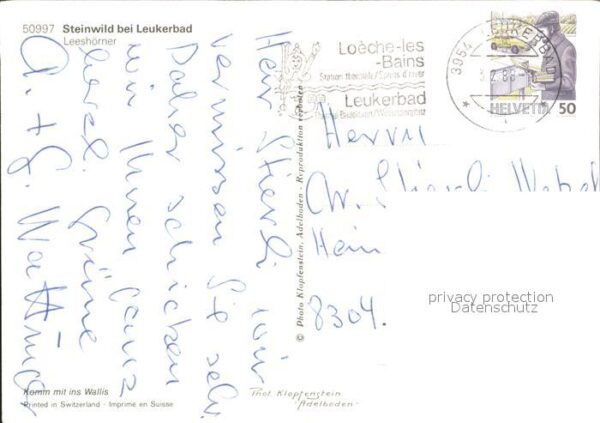 50997 Steinwild bei Leukerbad
Leeshörner
Herr Stierli wir
vermissen Sie sehr
Daher schicken
wir Ihnen ganz
herzl. Grüsse
A. + G.
Komm mit ins Wallis
Printed in Switzerland - Imprimé en Suisse
© Photo Klopfenstein, Adelboden - Reproduktion verboten
Phot Klopfenstein
"Adelboden"
Loèche-les
-Bains
Station thermale/Sports d'hiver
Leukerbad
Thermal Badekurort/Wintersportplatz
3954 LEUKERBAD
88
HELVETIA 50
Herrn
Chr. Stierli
8304.
privacy protection
Datenschutz